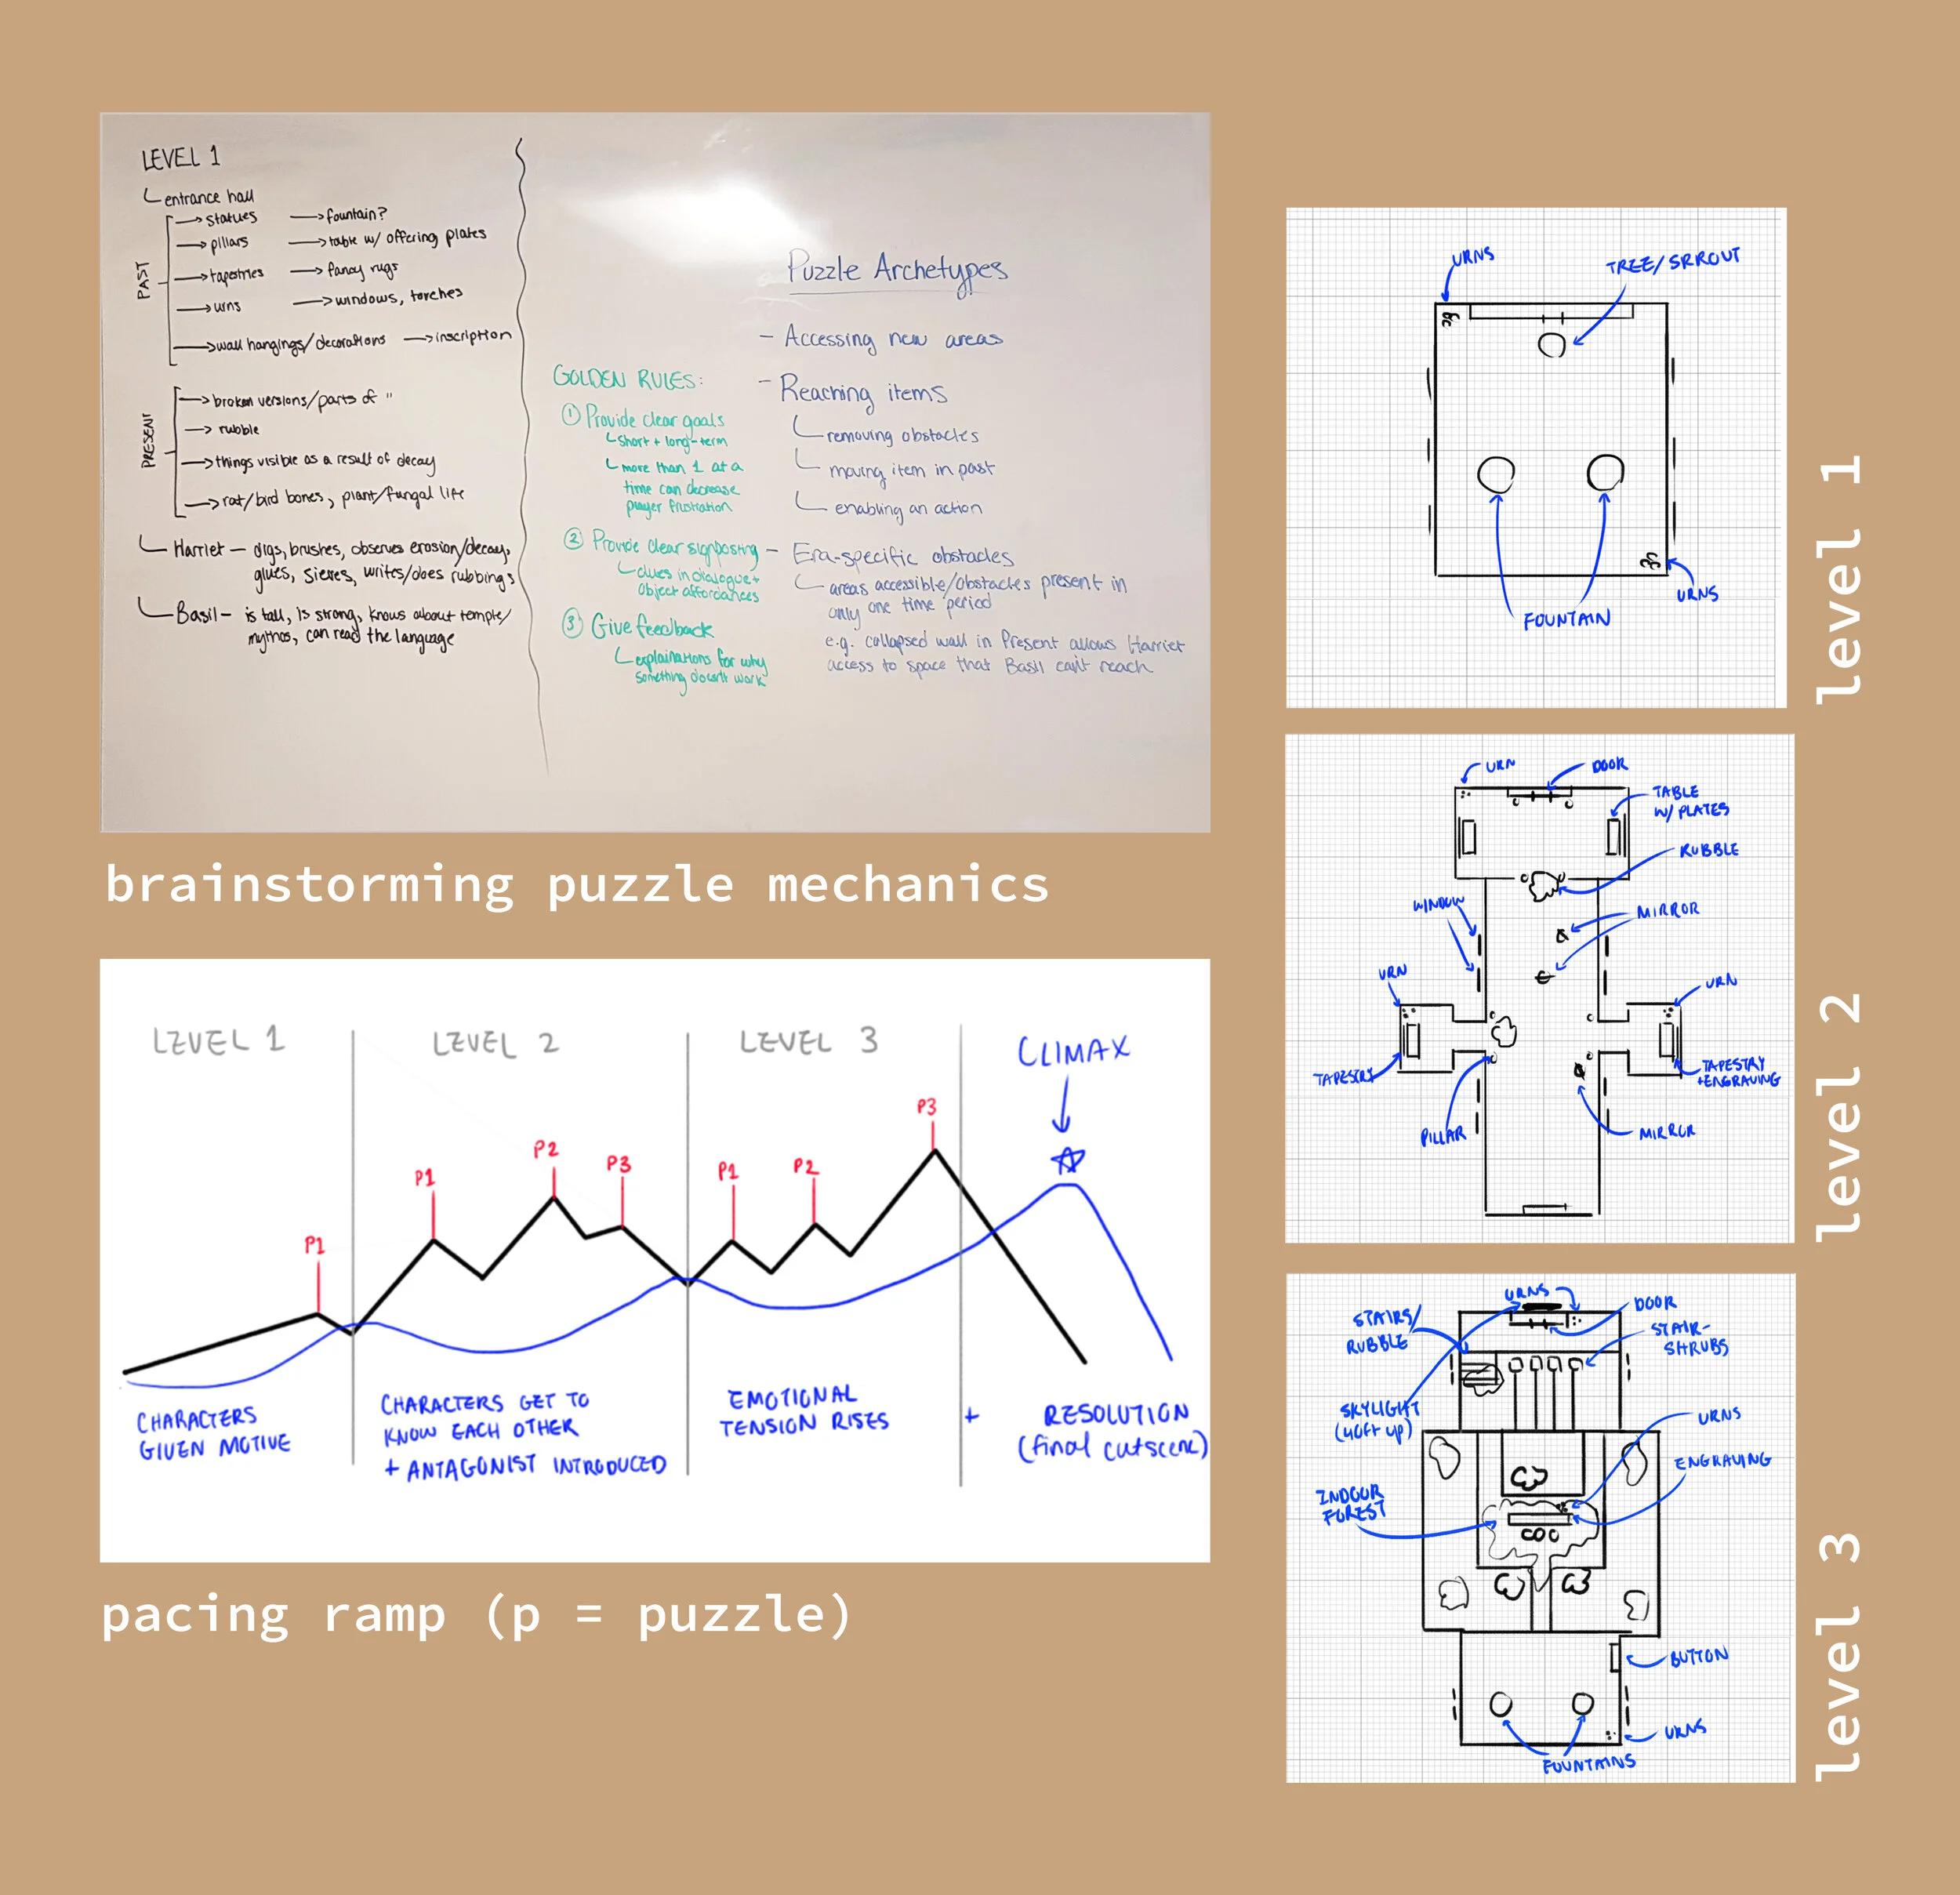 LEVEL 1
entrance hall
PAST
statues
fountain?
pillars
table w/ offering plates
tapestries
fancy rugs
urns
windows, torches
wall hangings/decorations
inscription
PRESENT
broken versions/parts of "
rubble
things visible as a result of decay
rat/bird bones, plant/fungal life
Harriet – digs, brushes, observes erosion/decay,
glues, sieves, writes/does rubbings
Basil – is tall, is strong, knows about temple/
mythos, can read the language
GOLDEN RULES:
① Provide clear goals
short + long-term
more than 1 at a
time can decrease
player frustration
② Provide clear signposting
clues in dialogue +
object affordances
③ Give feedback
explainations for why
something doesn't work
Puzzle Archetypes
- Accessing new areas
- Reaching items
removing obstacles
moving item in past
enabling an action
- Era-specific obstacles
areas accessible/obstacles present in
only one time period
e.g. collapsed wall in Present allows Harriet
access to space that Basil can't reach
brainstorming puzzle mechanics
LEVEL 1
LEVEL 2
LEVEL 3
CLIMAX
P1
P1
P2
P3
P1
P2
P3
CHARACTERS
GIVEN MOTIVE
CHARACTERS GET TO
KNOW EACH OTHER
+ ANTAGONIST INTRODUCED
EMOTIONAL
TENSION RISES
+
RESOLUTION
(final cutscene)
pacing ramp (p = puzzle)
URNS
TREE/SRROUT
FOUNTAIN
URNS
level 1
URN
DOOR
TABLE
W/ PLATES
RUBBLE
WINDOW
MIRROR
URN
URN
TAPESTRY
TAPESTRY
+ENGRAVING
PILLAR
MIRROR
level 2
URNS
DOOR
STAIRS/
RUBBLE
STAIR-
SHRUBS
SKYLIGHT
(40ft up)
URNS
ENGRAVING
INDOOR
FOREST
BUTTON
URNS
FOUNTAINS
level 3